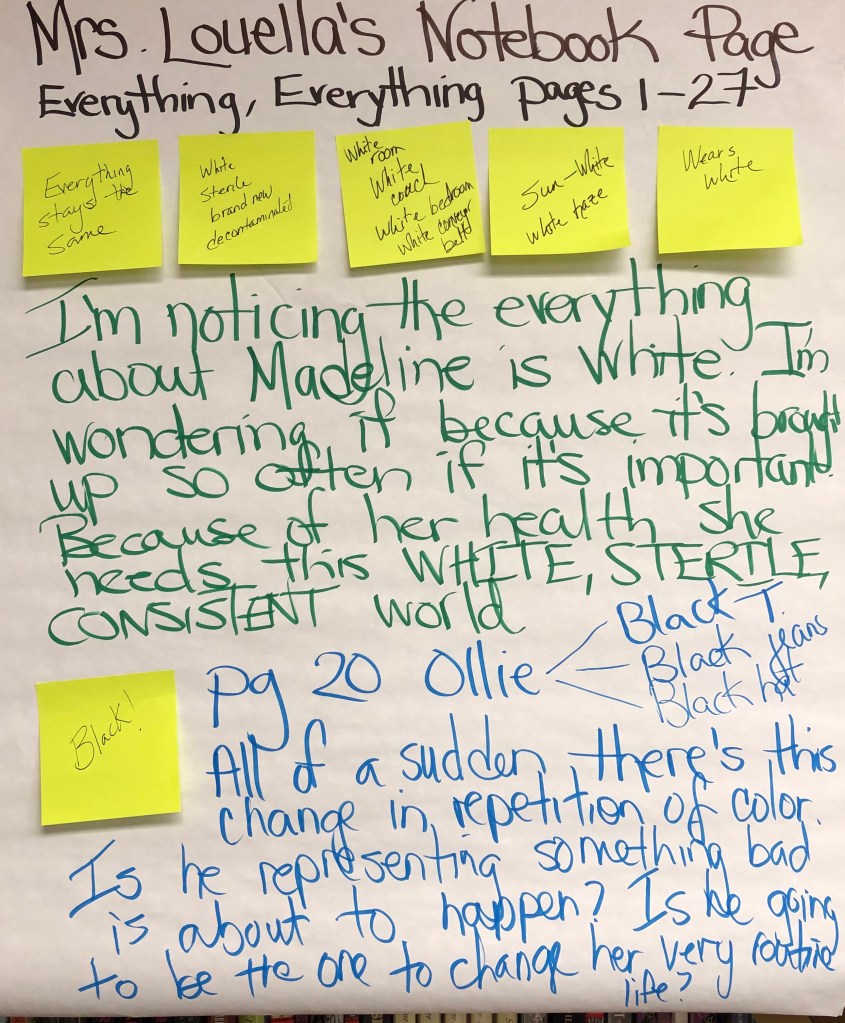 Mrs. Louella's Notebook Page
Everything, Everything pages 1-27
Everything
stays the
same
White
sterile
brand new
decontaminated
White
room
White
coach
White bedroom
White conveyor
belt
Sun-White
white haze
Wears
white
I'm noticing the everything
about Madeline is White. I'm
wondering if because it's brought
up so often if it's important.
Because of her health she
needs this WHITE, STERILE,
CONSISTENT world
Black!
pg 20 Ollie
Black T.
Black jeans
Black hat
All of a sudden there's this
change in repetition of color.
Is he representing something bad
is about to happen? Is he going
to be the one to change her very routine
life?